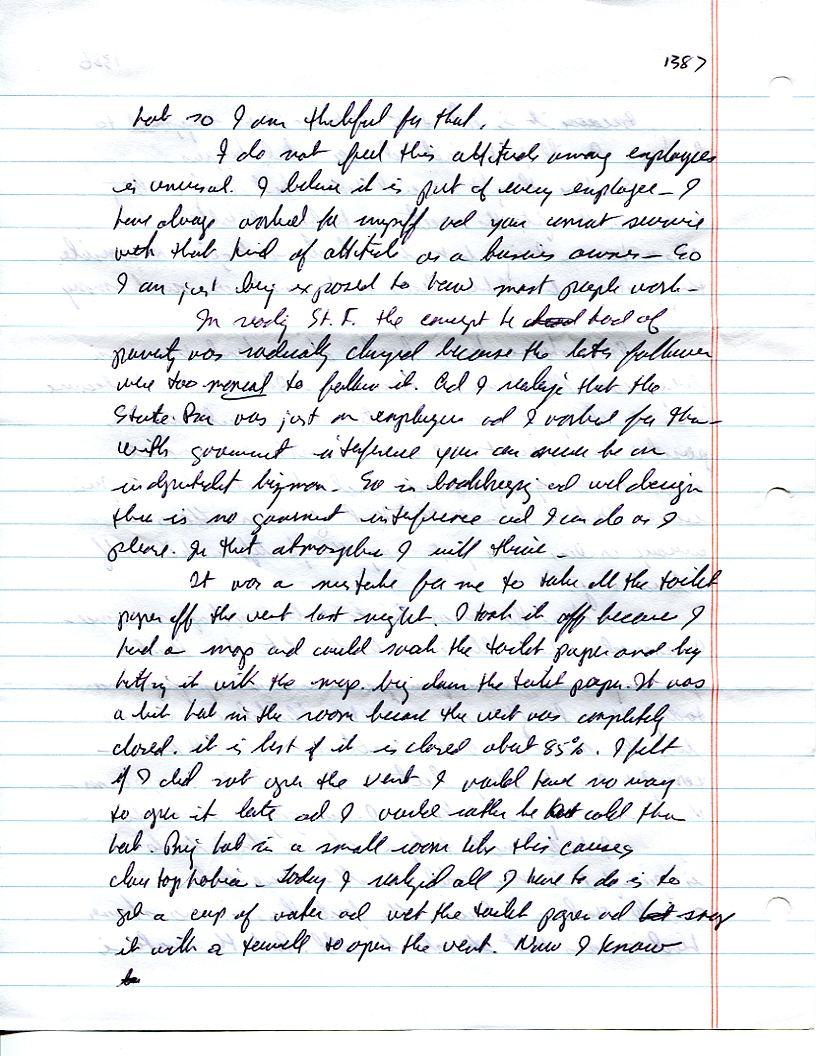 1387
hot so I am thankful for that.
I do not feel this attitude among employees
is unusual. I believe it is part of every employee - I
have always worked for myself and you cannot survive
with that kind of attitude as a business owner - So
I am just being exposed to how most people work -
In reading St. F. the concept he had of
poverty was radically changed because the later follower
were too to follow it. And I realize that the
State Bar was just an employer and I worked for them
with government interference you can never be an
independent . So in bookkeeping and web design
there is no government interference and I can do as I
please. In that atmosphere I will thrive -
It was a mistake for me to take all the toilet
paper off the vent last night. I took it off because I
had a mop and could soak the toilet paper and by
hitting it with the mop. bring down the toilet paper. It was
a bit hot in the room because the vent was completely
closed. it is best if it is closed about 85%. I felt
if I did not open the vent I would have no way
to open it later and I would rather be cold than
hot. Being hot in a small room like this causes
claustrophobia - Today I realized all I have to do is to
get a cup of water and wet the toilet paper and
it with a towell to open the vent. Now I know